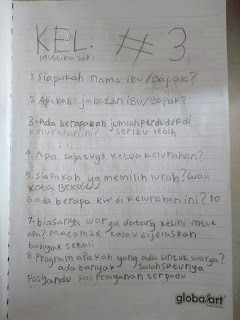 KEL. #3
Mustika sari
1. Siapakah nama ibu/Bapak?
2. Apakah jabatan ibu/Bapak?
3. Ada berapakah jumlah penduduk di
kelurahan ini? seribu lebih
4. Apa saja tugs ketua kelurahan?
5. Siapakah yg memilih lurah? wali
kota Bekasi
6. ada berapa RW di kelurahan ini? 10
7. biasanya warga datang kesini untuk
apa? Macam2x kalau dijelaskan
banyak sekali
8. Program apakah yang ada untuk warga?
ada banyak salah satunya
Posyandu pos pelayanan terpadu
globalart